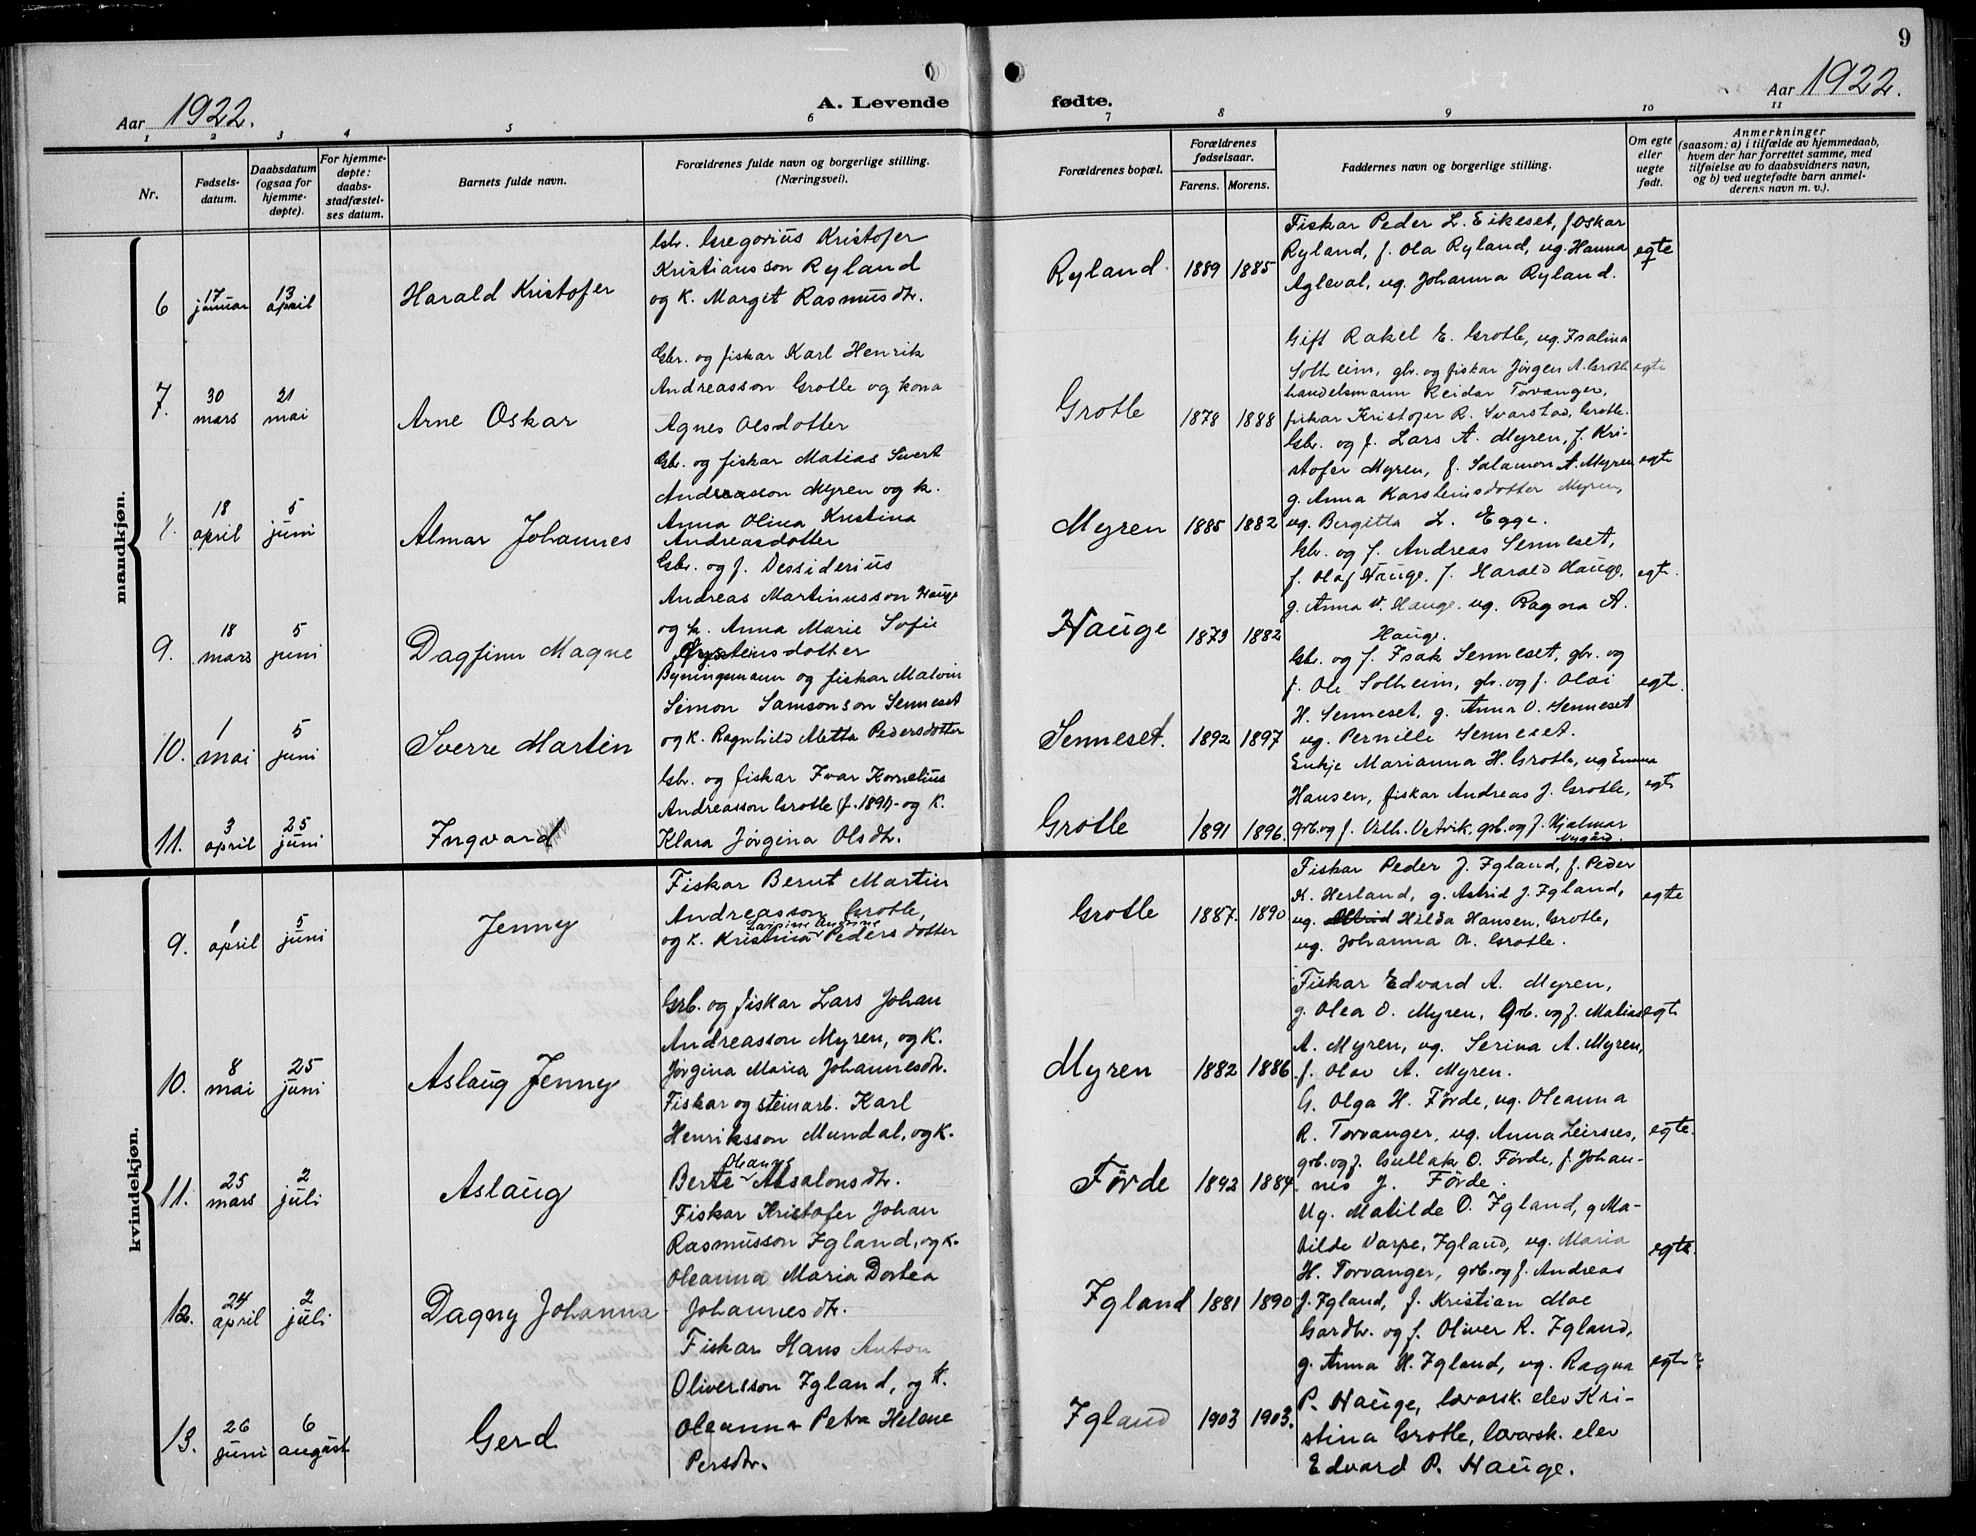 9
Aar 1922.
A. Levende
fødte.
Aar 1922.
1 2 3 4 5 6 7 8 9 10 11
Nr.
Fødsels-
datum.
Daabsdatum
(ogsaa for
hjemme-
døpte).
For hjemme-
døpte:
daabs-
stadfæstel-
ses datum.
Barnets fulde navn.
Forældrenes fulde navn og borgerlige stilling.
(Næringsvei).
Forældrenes bopæl.
Forældrenes
fødselsaar.
Farens. Morens.
Faddernes navn og borgerlige stilling.
Om egte
eller
uegte
født.
Anmerkninger
(saasom: a) i tilfælde av hjemmedaab,
hvem der har forrettet samme, med
tilføielse av to daabsvidners navn,
og b) ved uegtefødte barn anmel-
derens navn m. v.).
mandkjøn.
6
17
januar
13
april
Harald Kristofer
Gbr. Gregorius Kristofer
Kristiansson Ryland
og K. Margit Rasmusdtr.
Ryland.
1889 1885
Fiskar Peder L. Eikeset, f Oskar
Ryland, f. Ola Ryland, ug. Hanna
Agleval, ug. Johanna Ryland.
egte
7.
30
mars
21
mai
Arne Oskar
Gbr. og fiskar Karl Henrik
Andreasson Grotle og kona
Agnes Olsdotter
Grotle
1878 1888
Gift Rakel E. Grotle, ug. Isalina
Solheim, gbr. og fiskar Jörgen A. Grotle
handelsmann Reidar Torvanger,
fiskar Kristofer R. Svarstad, Grotle.
egte
8.
18
april
5
juni
Almar Johannes
Gbr. og fiskar Matias Sivert
Andreasson Myren og k.
Anna Olina Kristina
Andreasdotter
Myren
1885 1882
Gbr. og f. Lars A. Myren, f. Kri-
stofer Myren, f. Salamon A. Myren
g. Anna Karsteinsdotter Myren,
ug. Bergitta L. Egge.
egte
9.
18
mars
5
juni
Dagfinn Magne
Gbr. og f. Dessiderius
Andreas Martinusson Hauge
og k. Anna Marie Sofie
Øysteinsdotter
Hauge
1879 1882
Gbr. og f. Andreas Senneset,
f. Olaf Hauge, f. Harald Hauge,
g. Anna V. Hauge. ug. Ragna A.
Hauge.
egt.
10.
1
mai
5
juni
Sverre Martin
Byningsmann og fiskar Malvin
Simon Samsonson Senneset
og K. Ragnhild Metta Pedersdotter
Senneset.
1892 1897
Gbr. og f. Isak Senneset, gbr. og
f. Ole Solheim, gbr. og f. Olai
H. Senneset, g. Anna O. Senneset
ug. Pernille Senneset.
egt.
11.
3
april
25
juni
Ingvard
Gbr. og fiskar Ivar Kornelius
Andreasson Grotle (f. 1891) og K.
Klara Jørgina Olsdtr.
Grotle
1891 1896.
Enkje Marianna H. Grotle, ug Emma
Hansen, fiskar Andreas J. Grotle,
grb. og f. Vilh. Vetvik, grb. og f. Hjalmar
Nygård.
egte
kvindekjøn.
9.
1
april
5
juni
Jenny
Fiskar Bernt Martin
Andreasson Grotle,
og K. Kristina Pedersdotter
Grotle
1887. 1890
Fiskar Peder J. Igland, f. Peder
K. Herland, g. Astrid J. Igland,
ug. Hilda Hansen, Grotle,
ug. Johanna A. Grotle.
egte
10.
8
mai
25
juni
Aslaug Jenny
Grb. og fiskar Lars Johan
Andreasson Myren, og K.
Jørgina Maria Johannesdtr.
Myren
1882 1886.
Fiskar Edvard A. Myren,
g. Olea O. Myren, Grb. og f. Matias
A. Myren, ug. Serina A. Myren,
f. Olav A. Myren.
egte
11.
25
mars
2
juli
Aslaug
Fiskar og steinarb. Karl
Henriksson Mundal, og K.
Oleanna
Berte Absalonsdtr.
Førde
1892 1884.
G. Olga H. Førde, ug. Oleanna
R. Torvanger, ug. Anna Leirsnes,
grb. og f. Gullak O. Førde, f. Johan-
nes J. Førde.
egte.
12.
24
april
2
juli
Dagny Johanna
Fiskar Kristofer Johan
Rasmusson Igland, og K.
Oleanna Maria Dortea
Johannesdtr.
Igland
1881 1890
Ug. Matilde O. Igland, g Ma-
tilde Varpe, Igland, ug. Maria
H. Torvanger, grb. og f. Andreas
J. Igland, f. Kristian Moe
egte.
13.
26
juni
6
august
Gerd
Fiskar Hans Anton
Oliversson Igland, og K.
Oleanna Petra Helene
Persdtr.
Igland
1903 1903.
Gardbr. og f. Oliver R. Igland,
g. Anna H. Igland, ug. Ragna
P. Hauge, lærarsk. elev Kri-
stina Grotle, lærarsk. elev
Edvard P. Hauge.
egte